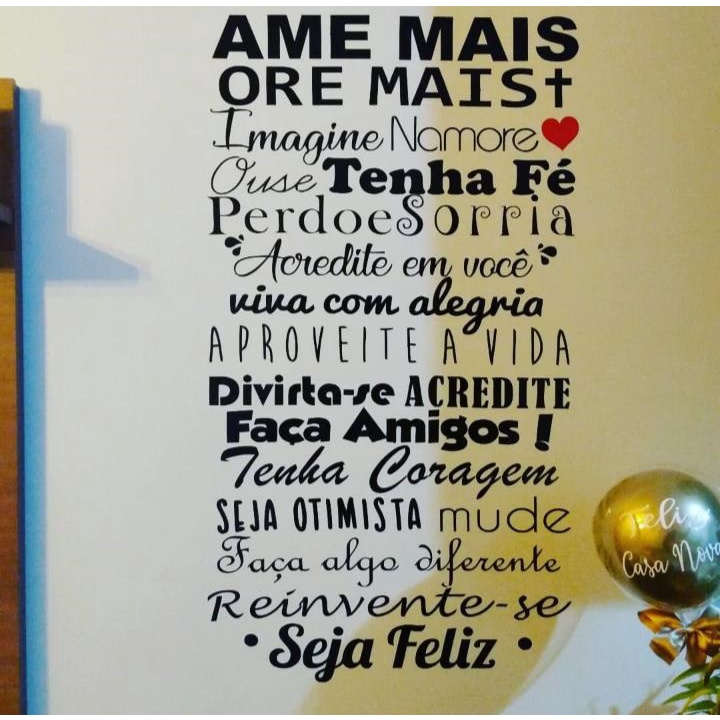 AME MAIS
ORE MAIS†
Imagine Namore
Ouse Tenha Fé
Perdoe Sorria
Acredite em você
viva com alegria
APROVEITE A VIDA
Divirta-se ACREDITE
Faça Amigos !
Tenha Coragem
SEJA OTIMISTA mude
Faça algo diferente
Reinvente-se
• Seja Feliz •
Feliz
Casa Nova